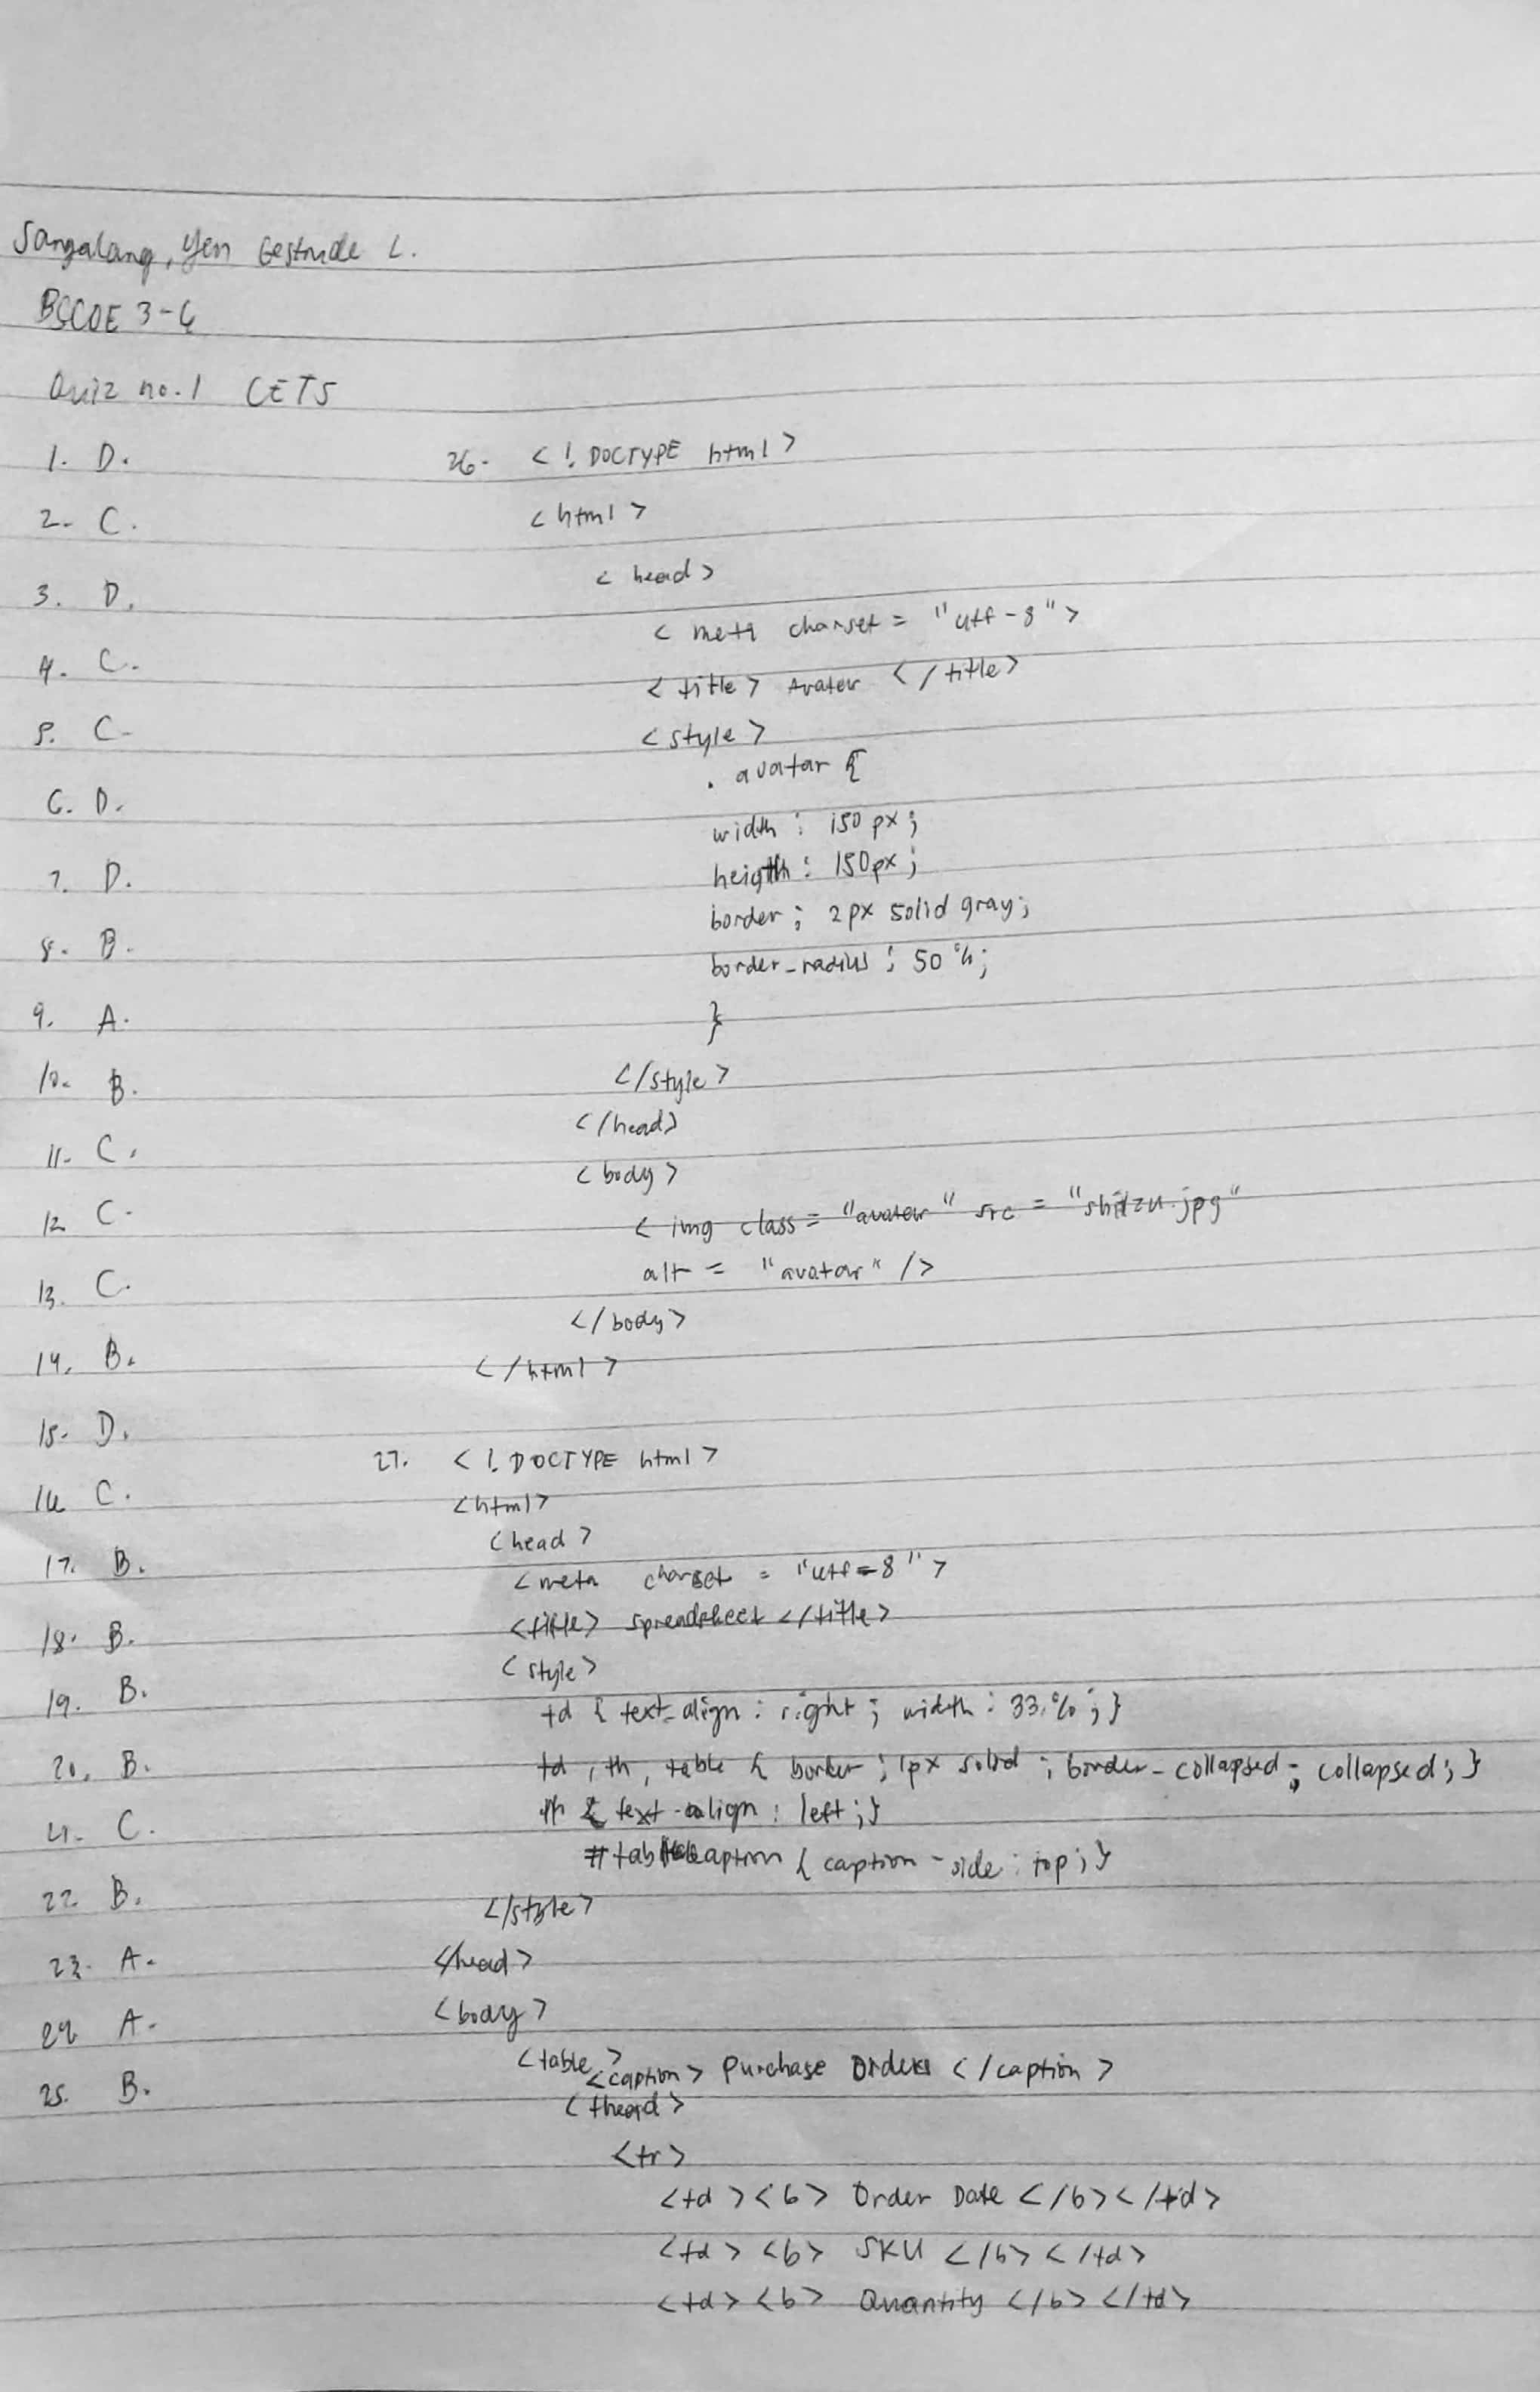 Sangalang, Yen Gestrude L.
BSCOE 3-6
Quiz no. 1 CETS
1. D.
2. C.
3. D.
4. C.
5. C.
6. D.
7. D.
8. B.
9. A.
10. B.
11. C.
12. C.
13. C.
14. B.
15. D.
16. C.
17. B.
18. B.
19. B.
20. B.
21. C.
22. B.
23. A.
24. A.
25. B.
26. <! DOCTYPE html>
<html>
<head>
<meta charset = "utf-8">
<title> Avatar </title>
<style>
. avatar {
width : 150 px ;
heigth : 150px ;
border ; 2px solid gray;
border-radius ; 50%;
}
</style>
</head>
<body>
<img class = "avatar" src = "shitzu.jpg"
alt = "avatar" />
</body>
</html>
27. <! DOCTYPE html>
<html>
<head>
<meta charset = "utf-8">
<title> spreadsheet </title>
<style>
td { text-align : right ; width : 33.% ; }
td , th , table { border ; 1px solid ; border-collapsed ; collapsed ; }
th { text-align : left ; }
{ caption-side : top ; }
</style>
</head>
<body>
<table>
<caption> Purchase Orders </caption>
<thead>
<tr>
<td><b> Order Date </b></td>
<td><b> SKU </b></td>
<td><b> Quantity </b></td>